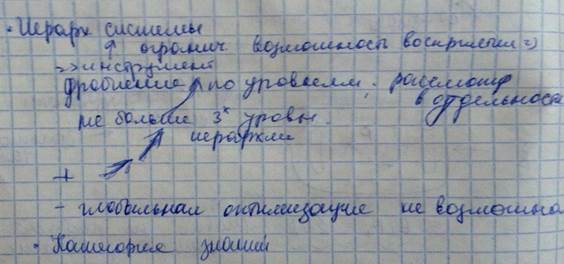 • Иерарх системы
↑ огранич возможность восприятия =>
=> инструмент
дробление по уровням. рассмотр
в отдельност
не больше 3х уровн.
иерархии
+
- глобальная оптимизация не возможна
• Категория знаний